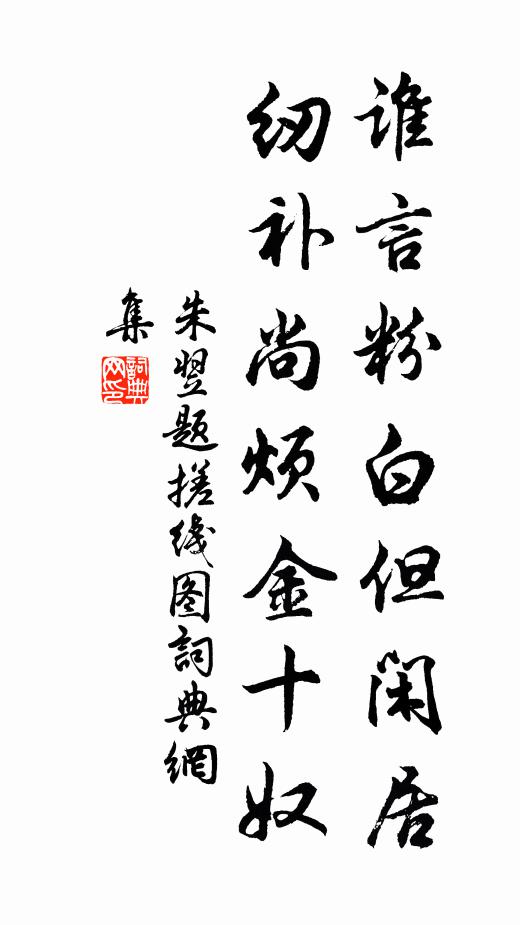 谁言粉白但闲居
纫补尚烦金十奴
朱翌题搓线图词典網
集
詞典網印